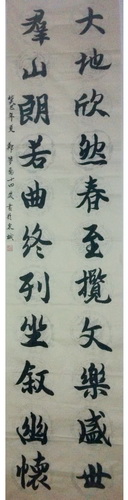 大地欣然春至攬文樂盛世
羣山朗若曲終列坐叙幽懷